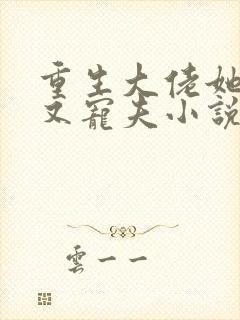 重生大佬她
又寵夫小說
雲一一